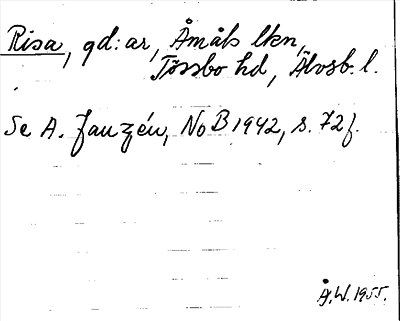 Risa, gd:ar, Åmåls lkn,
Tössbo hd, Älvsb. l.
Se A. Janzén, NoB 1942, s. 72 f.
Å.W. 1955.